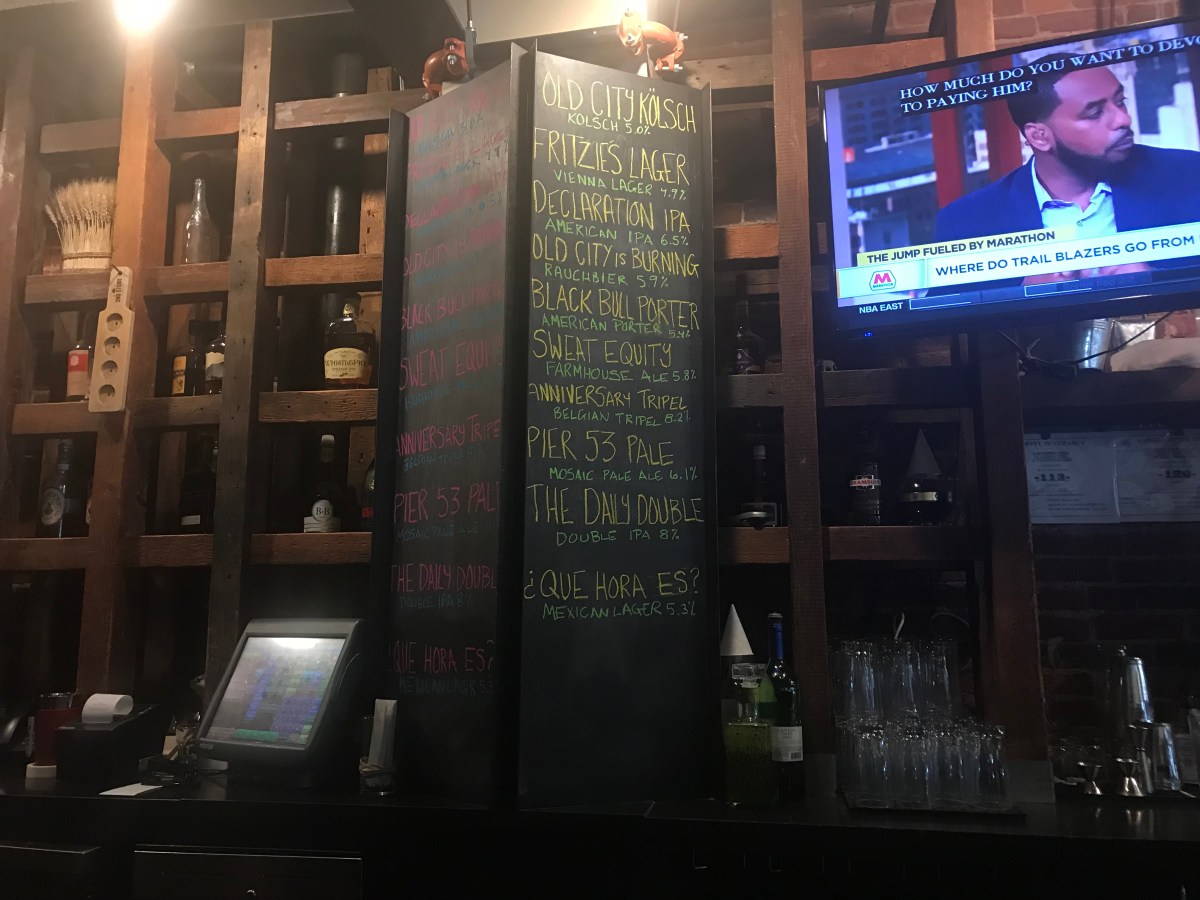 OLD CITY KÖLSCH
KOLSCH 5.0%
FRITZIE'S LAGER
VIENNA LAGER 4.9%
DECLARATION IPA
AMERICAN IPA 6.5%
OLD CITY IS BURNING
RAUCHBIER 5.9%
BLACK BULL PORTER
AMERICAN PORTER 5.4%
SWEAT EQUITY
FARMHOUSE ALE 5.8%
ANNIVERSARY TRIPEL
BELGIAN TRIPEL 8.2%
PIER 53 PALE
MOSAIC PALE ALE 6.1%
THE DAILY DOUBLE
DOUBLE IPA 8%
¿QUE HORA ES?
MEXICAN LAGER 5.3%
OLD CITY
BLACK BULL
SWEAT EQUI
ANNIVERSARY TRIPE
PIER 53 PAL
MOSAIC PALE ALE
THE DAILY DOUBL
DOUBLE IPA 8%
¿QUE HORA ES?
MEXICAN LAGER 5.3
HOW MUCH DO YOU WANT TO DEVO
TO PAYING HIM?
THE JUMP FUELED BY MARATHON
MARATHON
WHERE DO TRAIL BLAZERS GO FROM
NBA EAST
B&B